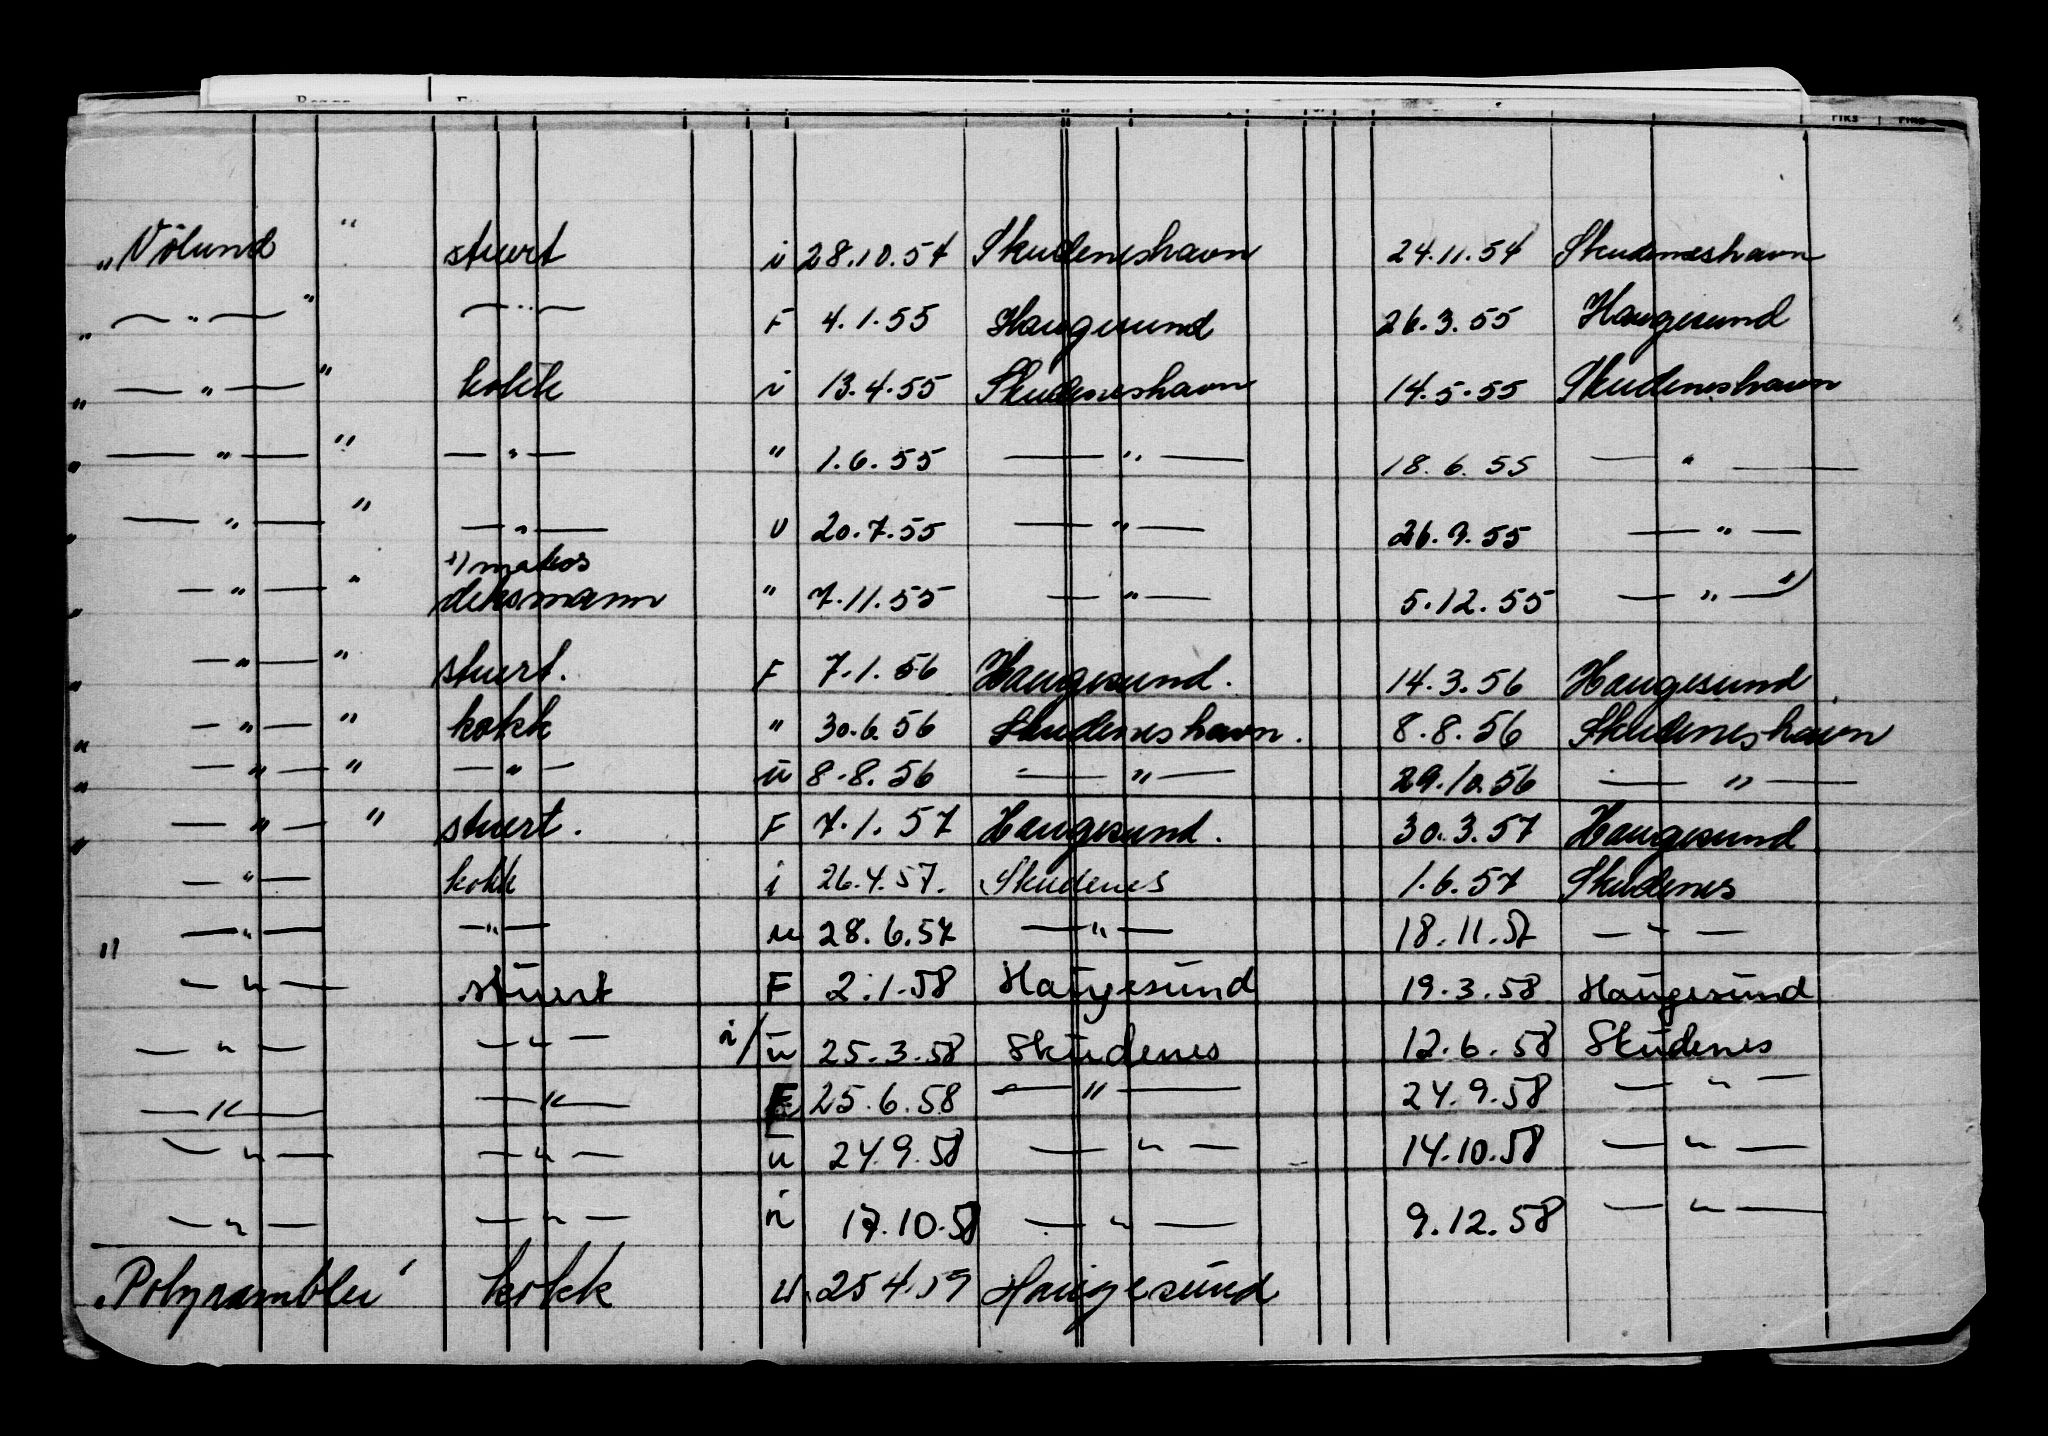 „Vólund" stuert i 28.10.54 Skudeneshavn 24.11.54 Skudeneshavn
„ — " — " — " — F 4.1.55 Haugesund 26.3.55 Haugesund
„ — " — " kokk i 13.4.55 Skudeneshavn 14.5.55 Skudeneshavn
„ — " — " — " — " 1.6.55 — " — 18.6.55 — " —
„ — " — " — " — U 20.7.55 — " — 26.9.55 — " —
1) matros
„ — " — " deksmann " 7.11.55 — " — 5.12.55 — " — 1)
„ — " — " stuert. F 7.1.56 Haugesund. 14.3.56 Haugesund
„ — " — " kokk " 30.6.56 Skudeneshavn. 8.8.56 Skudeneshavn
„ — " — " — " — u 8.8.56 — " — 29.10.56 — " —
„ — " — " stuert. F 7.1.57 Haugesund. 30.3.57 Haugesund
— " — kokk i 26.4.57. Skudenes 1.6.57 Skudenes
" — " — — " — u 28.6.57 — " — 18.11.57 — " —
— " — stuert F 2.1.58 Haugesund 19.3.58 Haugesund
— " — — " — i/u 25.3.58 Skudenes 12.6.58 Skudenes
— " — — " — F 25.6.58 — " — 24.9.58 — " —
— " — — " — u 24.9.58 — " — 14.10.58 — " —
— " — — " — i 17.10.58 — " — 9.12.58 — " —
„Polyrambler" kokk U. 25 4.59 Haugesund